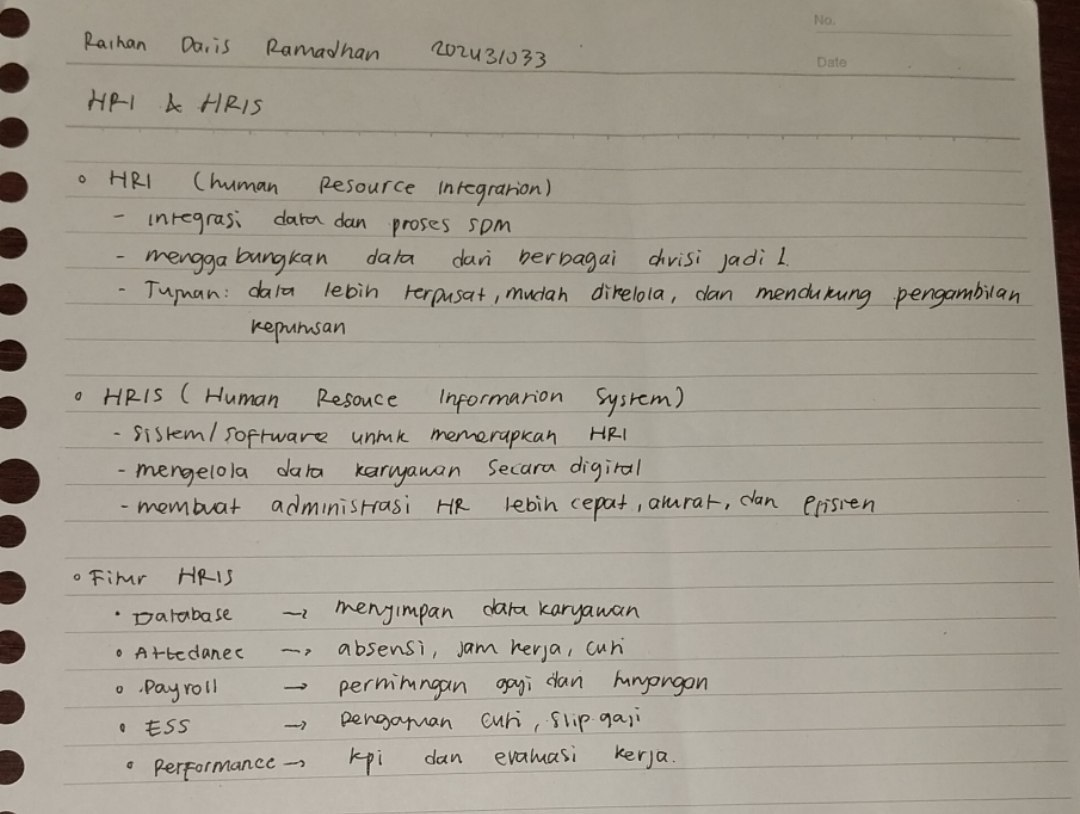 No.
Raihan Daris Ramadhan 202431033
Date
HRI & HRIS
◦ HRI (human Resource integration)
- integrasi data dan proses SDM
- menggabungkan data dari berbagai divisi jadi 1.
- Tujuan: data lebih terpusat, mudah dikelola, dan mendukung pengambilan
keputusan
◦ HRIS (Human Resouce Information System)
- sistem/software untuk menerapkan HRI
- mengelola data karyawan secara digital
- membuat administrasi HR lebih cepat, akurat, dan efisien
◦ Fitur HRIS
• Database → menyimpan data karyawan
◦ Attedance → absensi, jam kerja, cuti
◦ Payroll → perhitungan gaji dan tunjangan
• ESS → pengajuan cuti, slip gaji
• Performance → kpi dan evaluasi kerja.